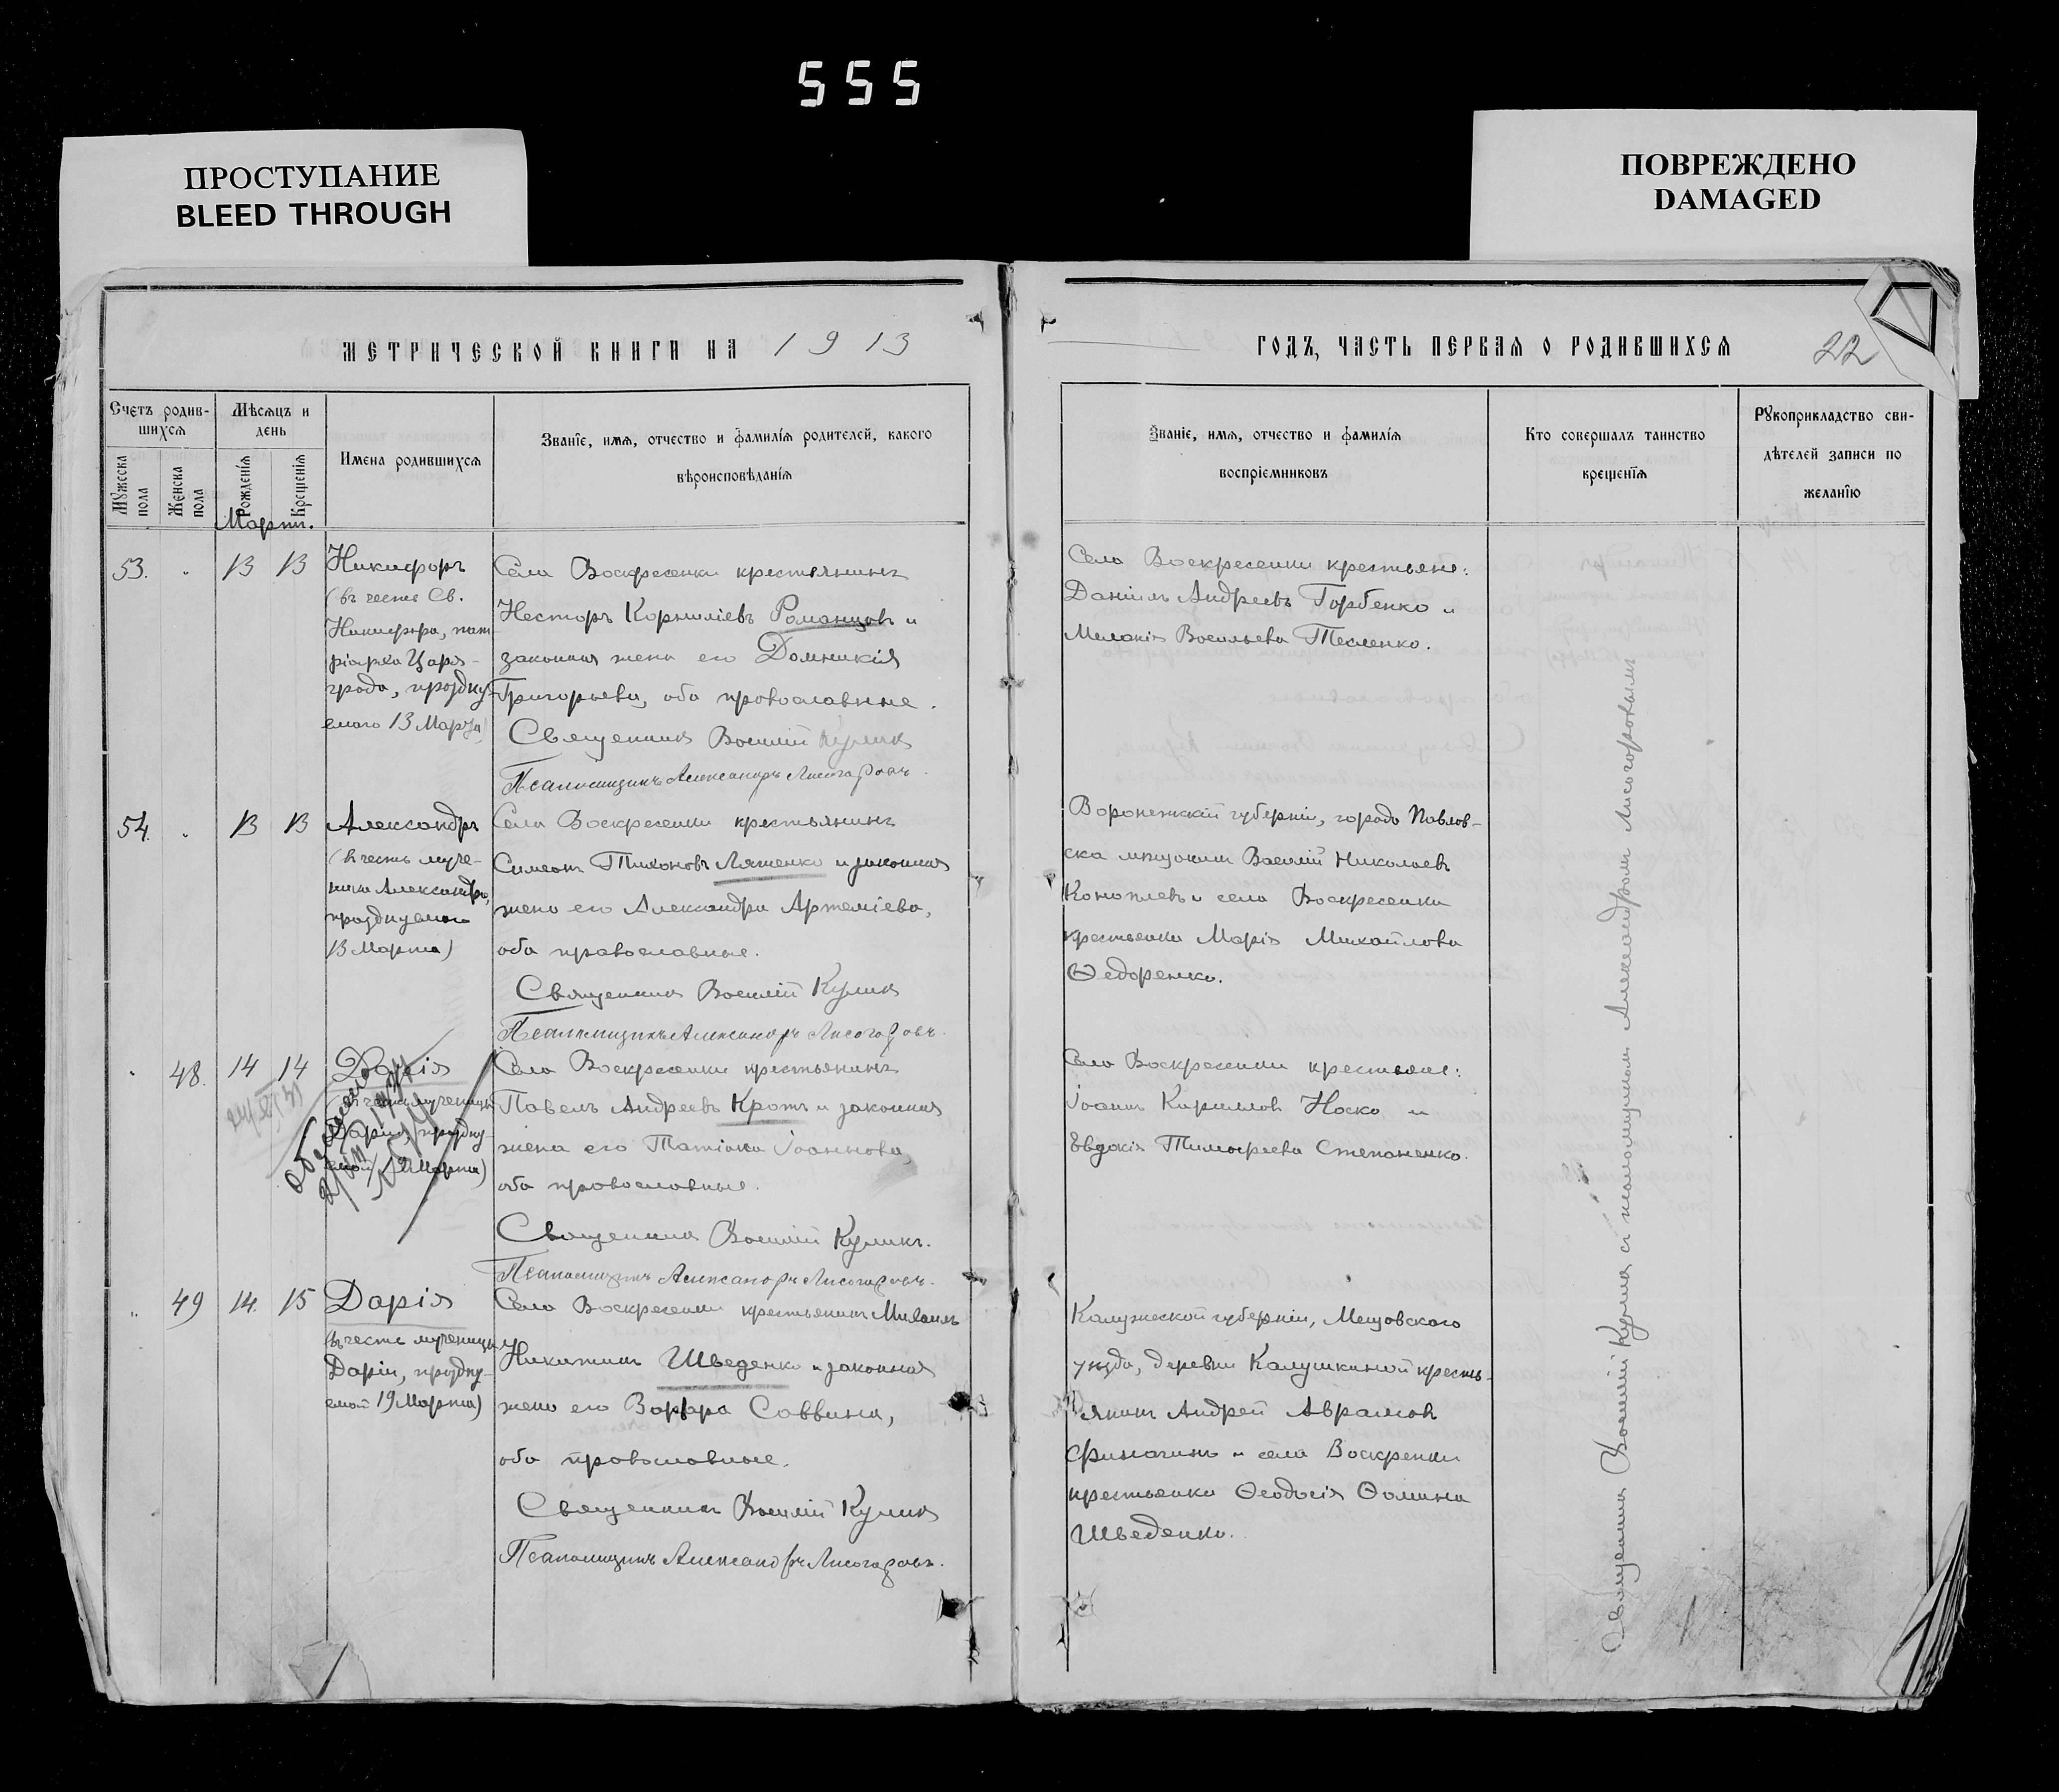 555
ПРОСТУПАНИЕ
BLEED THROUGH
ПОВРЕЖДЕНО
DAMAGED
МЕТРИЧЕСКОЙ КНИГИ НА 1913
ГОДЪ, ЧАСТЬ ПЕРВАЯ О РОДИВШИХСЯ
22
Счетъ родив-
шихся
Мѣсяцъ и
день
Мужеска
пола
Женска
пола
Рожденія
Крещенія
Имена родившихся
Званіе, имя, отчество и фамилія родителей, какого
вѣроисповѣданія
Званіе, имя, отчество и фамилія
воспріемниковъ
Кто совершалъ таинство
крещенія
Рукоприкладство сви-
дѣтелей записи по
желанію
Мартъ.
53. 13 13
Никифоръ
(въ честь Св.
Никифора, пат-
ріарха Царя-
града, празднуе-
емаго 13 Марта)
Села Воскресенки крестьянинъ
Несторъ Корниліевъ Романцовъ и
законная жена его Домникія
Григорьева, оба православные.
Священникъ Василій Куликъ
Псаломщикъ Александръ Лисогоровъ.
Села Воскресенки крестьяне:
Даніилъ Андреевъ Горбенко и
Меланія Васильева Тесленко.
54. 13 13
Александръ
(въ честь муче-
ника Александра,
празднуемаго
13 Марта)
Села Воскресенки крестьянинъ
Симеонъ Тихоновъ Ляшенко и законная
жена его Александра Артеміева,
оба православные.
Священникъ Василій Куликъ
Псаломщикъ Александръ Лисогоровъ.
Воронежской губерніи, города Павлов-
ска мѣщанинъ Василій Николаевъ
Коноплевъ и села Воскресенки
крестьянка Марія Михайлова
Ѳедоренко.
48. 14 14
Дарія
(въ честь мученицы
Даріи, праздну-
емой 19 Марта)
Села Воскресенки крестьянинъ
Павелъ Андреевъ Кротъ и законная
жена его Татіана Іоаннова,
оба православные.
Священникъ Василій Куликъ.
Псаломщикъ Александръ Лисогоровъ.
Села Воскресенки крестьяне:
Іоаннъ Кирилловъ Носко и
Евдокія Тимофеева Степаненко.
49 14. 15
Дарія
(въ честь мученицы
Даріи, праздну-
емой 19 Марта)
Села Воскресенки крестьянинъ Михаилъ
Никитинъ Шведенко и законная
жена его Варвара Саввина,
оба православные.
Священникъ Василій Куликъ
Псаломщикъ Александръ Лисогоровъ.
Калужской губерніи, Мещовскаго
уѣзда, деревни Калушкиной кресть-
янинъ Андрей Аврамовъ
Финагинъ и села Воскренки
крестьянка Ѳеодосія Ѳомина
Шведенко.
Священникъ Василій Куликъ съ псаломщикомъ Александромъ Лисогоровымъ